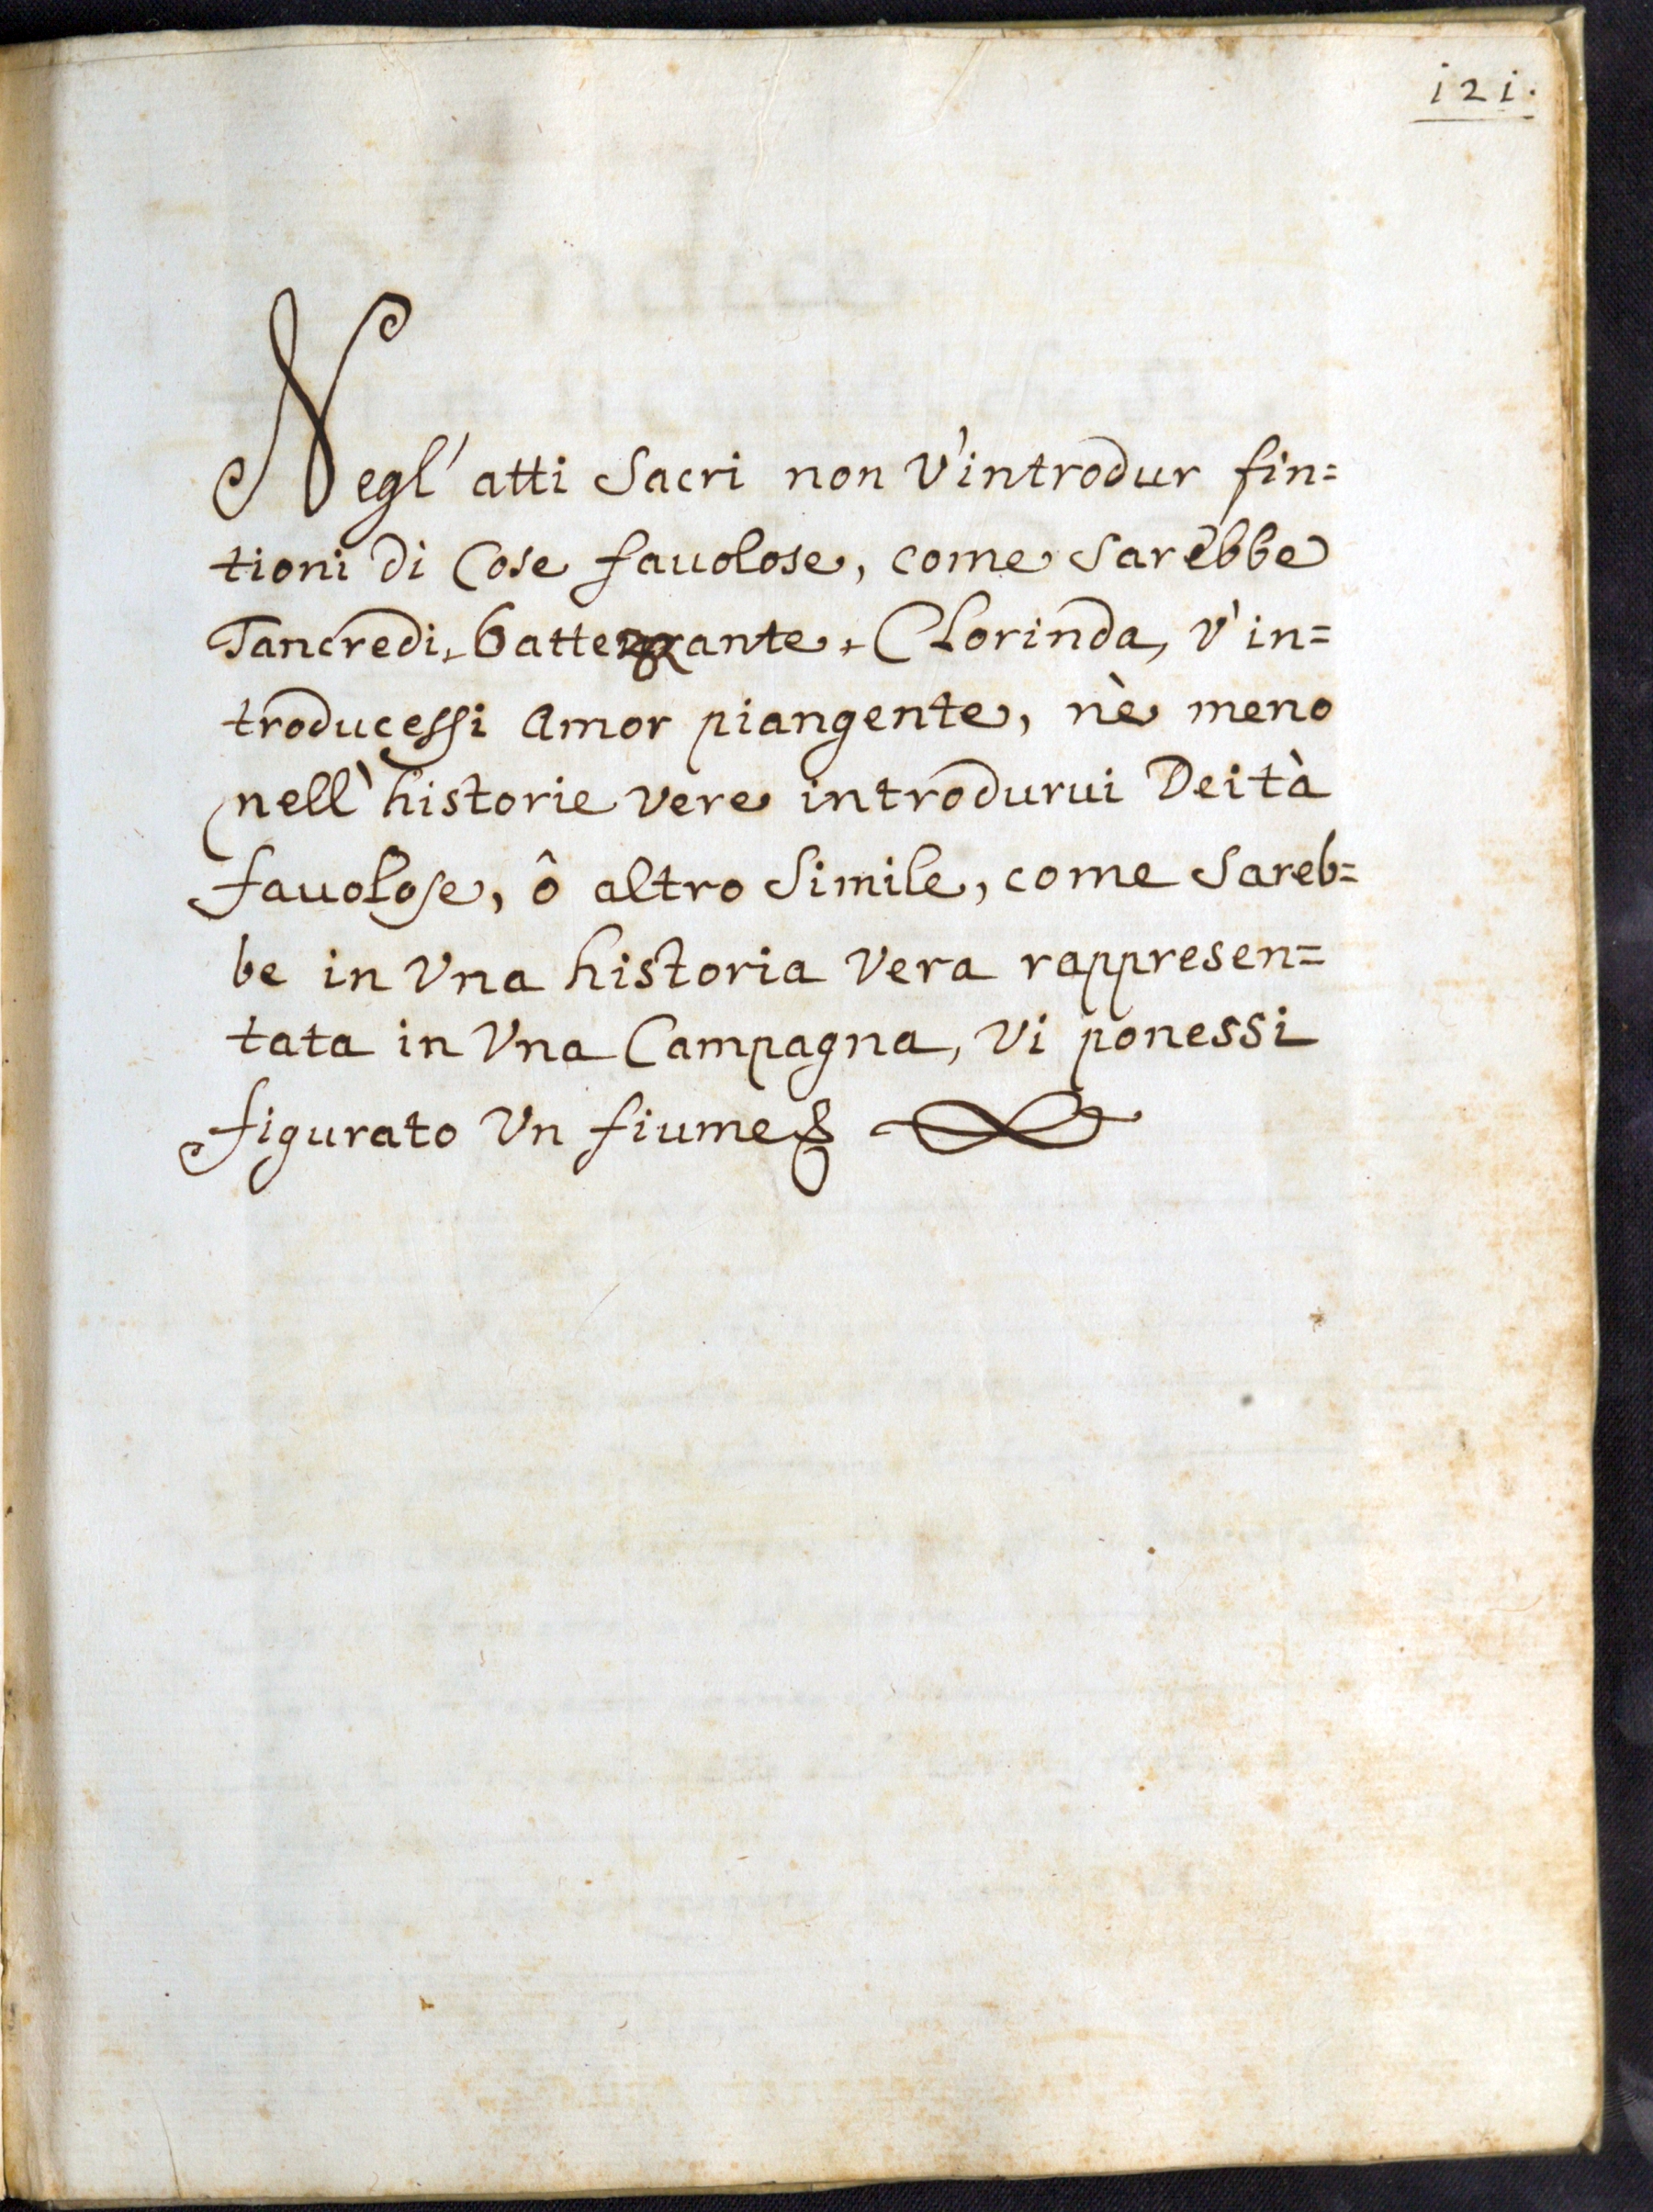 i2i.
Negl' atti Sacri non v'introdur fin=
tioni di Cose fauolose, come sarebbe
Tancredi, battezzante, Clorinda, v'in=
troducessi Amor piangente, nè meno
nell' historie vere introdurui Deità
fauolose, ô altro simile, come sareb=
be in Vna historia vera rappresen=
tata in Vna Campagna, vi ponessi
figurato Vn fiume